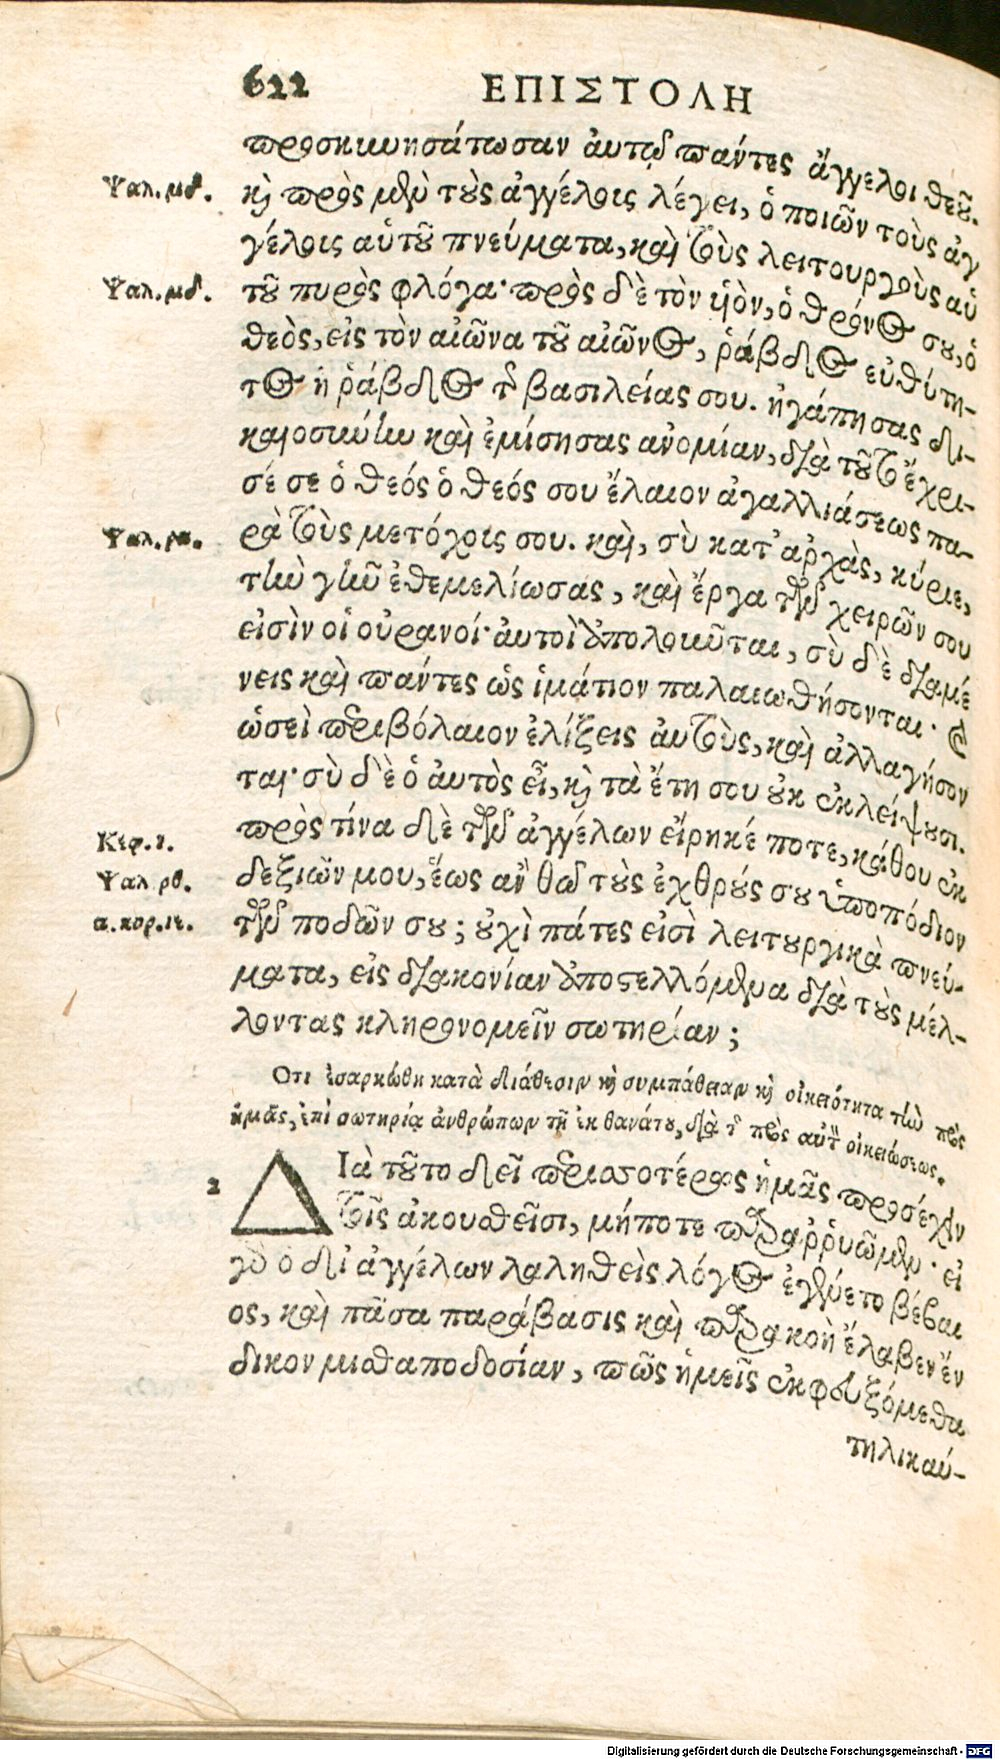 622 ΕΠΙΣΤΟΛΗ
προσκυνησάτωσαν ἀυτῷ παντες ἄγγελοι θεοῦ.
Ψαλ. μδ. κὶ πρὸς μὲν τοὺς ἀγγέλοις λέγει, ὁ ποιῶν τοὺς ἀγ
γέλοις αὑτοῦ πνεύματα, καὶ τοὺς λειτουργοὺς αὑ
Ψαλ. μδ. τοῦ πυρὸς φλόγα· πρὸς δὲ τὸν ὑὸν, ὁ θρόνος σου, ὁ
θεὸς, εἰς τὸν αἰῶνα τοῦ αἰῶνος, ῥάβδος εὐθύτη-
τος ἡ ῥάβδος τῆς βασιλείας σου. ἠγάπησας δι-
καιοσύνην καὶ ἐμίσησας ανομίαν, διὰ τοῦτο ἔχρι-
σέ σε ὁ θεός ὁ θεός σου ἔλαιον ἀγαλλιάσεως πα-
Ψαλ. ρα. ρὰ τοὺς μετόχοις σου. καὶ, σὺ κατ' αρχὰς, κύριε,
τὴν γῆν ἐθεμελίωσας, καὶ ἔργα τῶν χειρῶν σου
εἰσὶν οἱ οὐρανοί· ἀυτοὶ ἀπολοῦνται, σὺ δὲ διαμέ
νεις καὶ παντες ὡς ἱμάτιον παλαιωθήσονται· καὶ
ὡσεὶ περιβόλαιον ἑλίξεις ἀυτοὺς, καὶ ἀλλαγήσον
ται· σὺ δὲ ὁ ἀυτὸς εἶ, κὶ τὰ ἔτη σου οὐκ ἐκλείψουσι.
Κεφ. ι. πρὸς τίνα δὲ τῶν ἀγγέλων εἴρηκέ ποτε, κάθου ἐκ
Ψαλ. ρθ. δεξιῶν μου, ἕως αν θῶ τοὺς ἐχθρούς σου ὑποπόδιον
α. κορ. ιε. τῶν ποδῶν σου; οὐχὶ πάτες εἰσὶ λειτουργικὰ πνεύ-
ματα, εἰς διακονίαν ἀποστελλόμενα διὰ τοὺς μέλ-
λοντας κληρονομεῖν σωτηρίαν;
Οτι ἐσαρκώθη κατὰ διάθεσιν κὶ συμπάθειαν κὶ οἰκειότητα τὴν πρὸς
ἡμᾶς, ἐπὶ σωτηρίᾳ ἀνθρώπων τῇ ἐκ θανάτου, διὰ τῆς πρὸς αὐτὸν οἰκειώσεως.
2 ΔΙὰ τοῦτο δεῖ περισσοτέρως ἡμᾶς προσέχειν
τοῖς ἀκουθεῖσι, μήποτε παραῤῥυῶμεν· εἰ
γὰρ ὁ δι' ἀγγέλων λαληθεὶς λόγος ἐγένετο βέβαι
ος, καὶ πᾶσα παράβασις καὶ παρακοὴ ἔλαβεν ἔν
δικον μισθαποδοσίαν, πῶς ἡμεῖς ἐκφευξόμεθα
τηλικαύ-
Digitalisierung gefördert durch die Deutsche Forschungsgemeinschaft - DFG